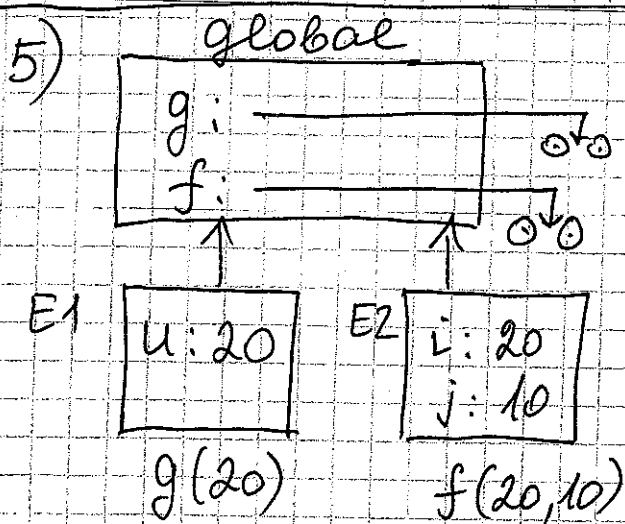 5) global
g:
f:
E1 u: 20 E2 i: 20
j: 10
g(20) f(20,10)